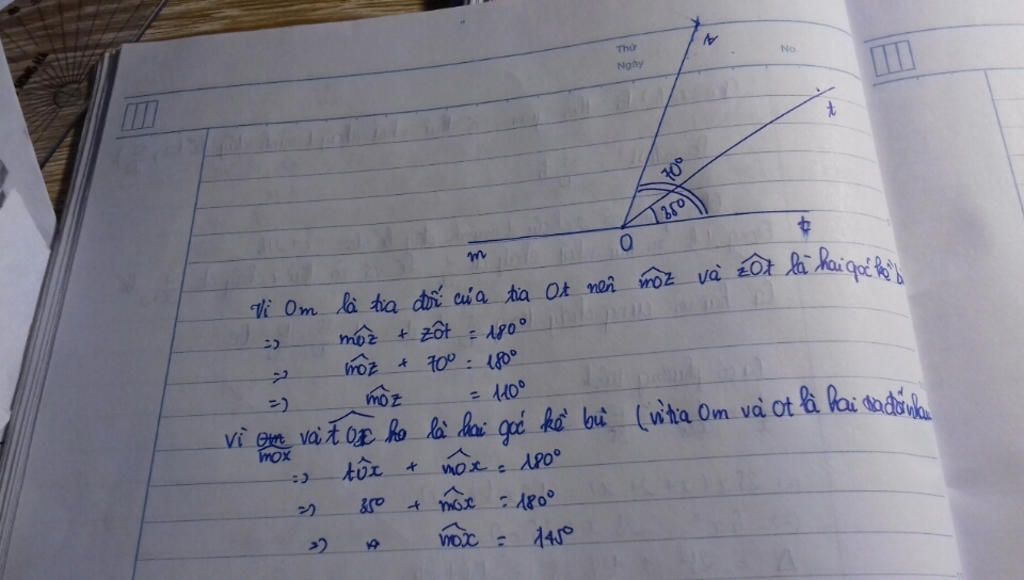 Thứ
Ngày
No.
70°
350
m
O
Vì Om là tia đối của tia Ot nên mÔz và zÔt là hai góc kề b
=> mÔz + zÔt = 180°
=> mÔz + 70° = 180°
=> mÔz = 110°
Vì mÔx và tÔx là hai góc kề bù (vì tia Om và Ot là hai tia đối nhau
=> tÔx + mÔx = 180°
=> 350 + mÔx = 180°
=> mÔx = 145°